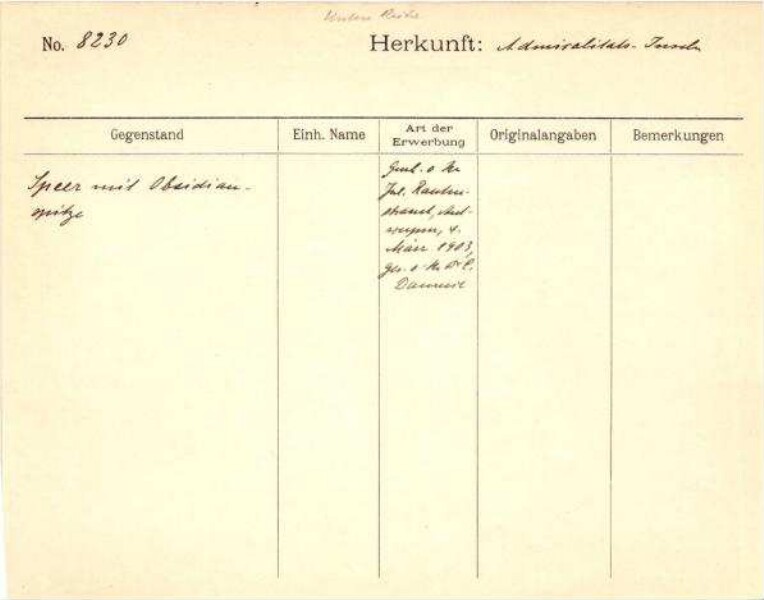 Untere Reihe
No. 8230 Herkunft: Admiralitäts-Inseln
Gegenstand Einh. Name Art der Erwerbung Originalangaben Bemerkungen
Speer mit Obsidian-
spitze
Jul. Rauten-
strauch, Ant-
werpen, 4.
März 1903,
ges. v. H. Dr C.